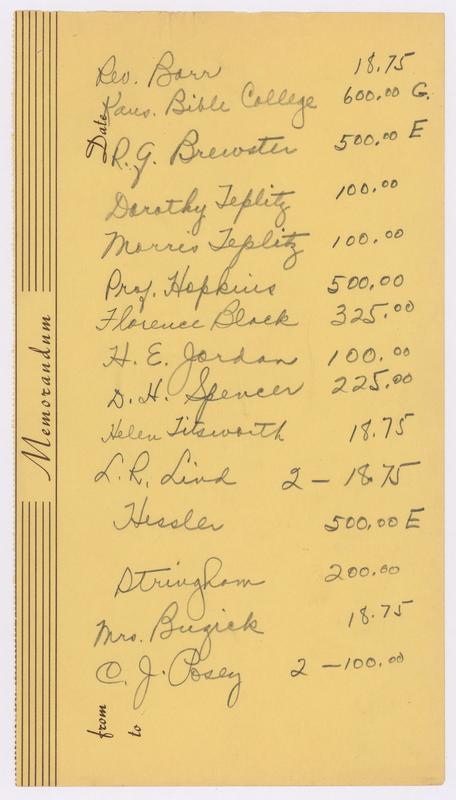 Memorandum
Date
from
to
Rev. Barr 18.75
Kans. Bible College 600.00 G.
R. G. Brewster 500.00 E
Dorothy Teplitz 100.00
Morris Teplitz 100.00
Prof. Hopkins 500.00
Florence Black 325.00
H. E. Jordan 100.00
D. H. Spencer 225.00
Helen Titsworth 18.75
L. R. Lind 2 — 18.75
Hessler 500.00 E
Stringham 200.00
Mrs. Buzick 18.75
C. J. Posey 2 — 100.00